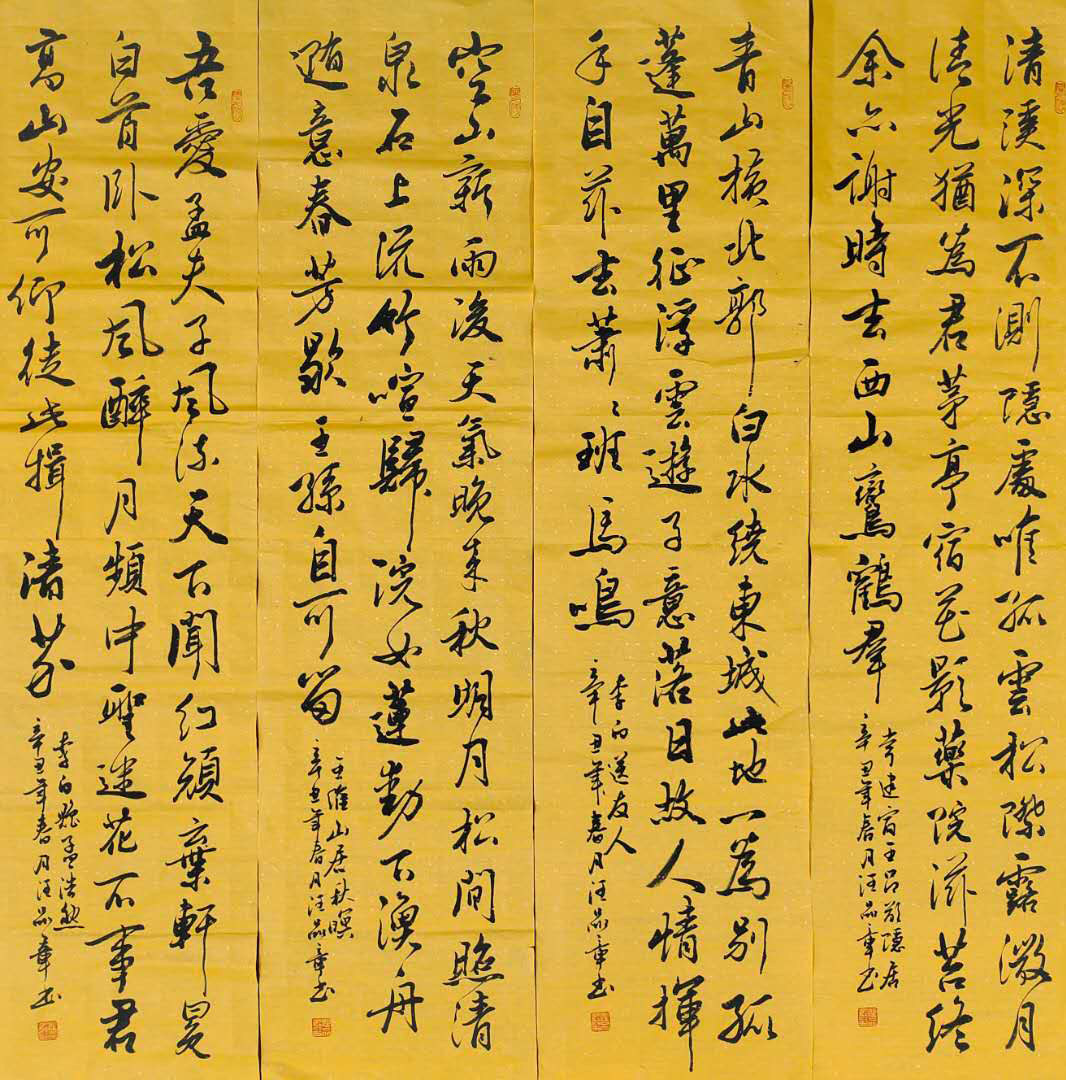 清溪深不測隱處唯孤雲松際露微月
清光猶為君茅亭宿花影藥院滋苔紋
余亦謝時去西山鸞鶴群
常建宿王昌齡隱居
辛丑年春月汪品章书
青山橫北郭白水繞東城此地一為別孤
蓬萬里征浮雲遊子意落日故人情揮
手自茲去蕭〻班馬鳴
李白送友人
辛丑年春月汪品章书
空山新雨後天氣晚來秋明月松間照清
泉石上流竹喧歸浣女蓮動下漁舟
隨意春芳歇王孫自可留
王維山居秋暝
辛丑年春月汪品章书
吾愛孟夫子風流天下聞紅顏棄軒冕
白首卧松風醉月頻中聖迷花不事君
高山安可仰徒此揖清芬
李白贈孟浩然
辛丑年春月汪品章书